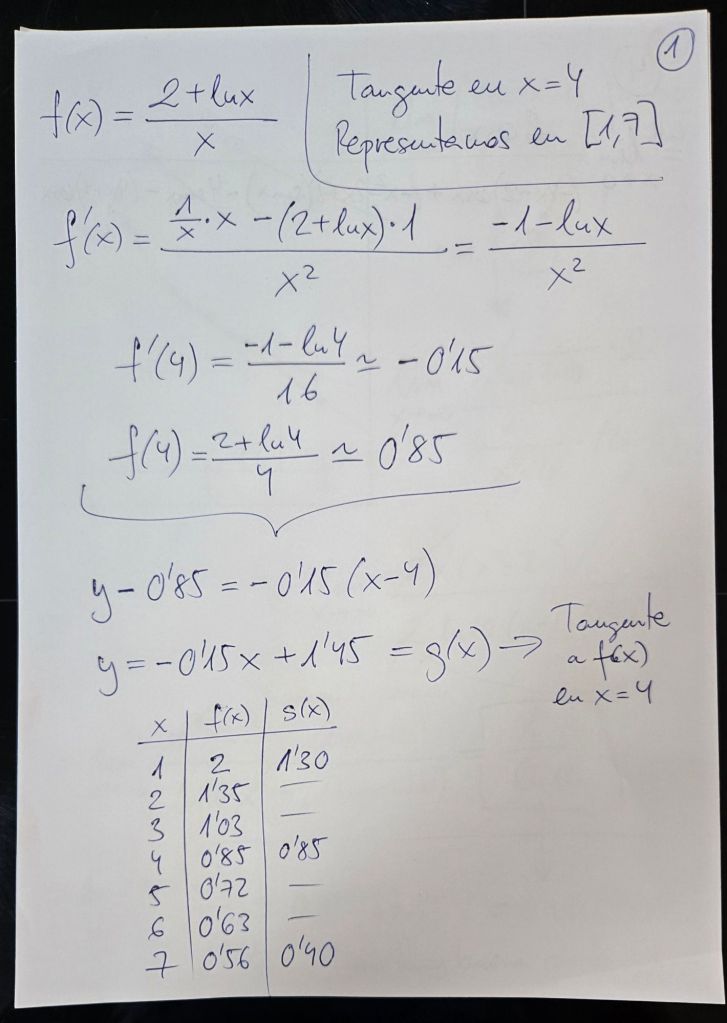 1
f(x) = (2+lnx)/x
Tangente en x=4
Representamos en [1,7]
f'(x) = (1/x · x - (2+lnx)·1)/x² = (-1-lnx)/x²
f'(4) = (-1-ln4)/16 ≃ -0'15
f(4) = (2+ln4)/4 ≃ 0'85
y - 0'85 = -0'15 (x-4)
y = -0'15x + 1'45 = g(x) → Tangente
a f(x)
en x=4
x | f(x) | g(x)
1 | 2 | 1'30
2 | 1'35 | —
3 | 1'03 | —
4 | 0'85 | 0'85
5 | 0'72 | —
6 | 0'63 | —
7 | 0'56 | 0'40